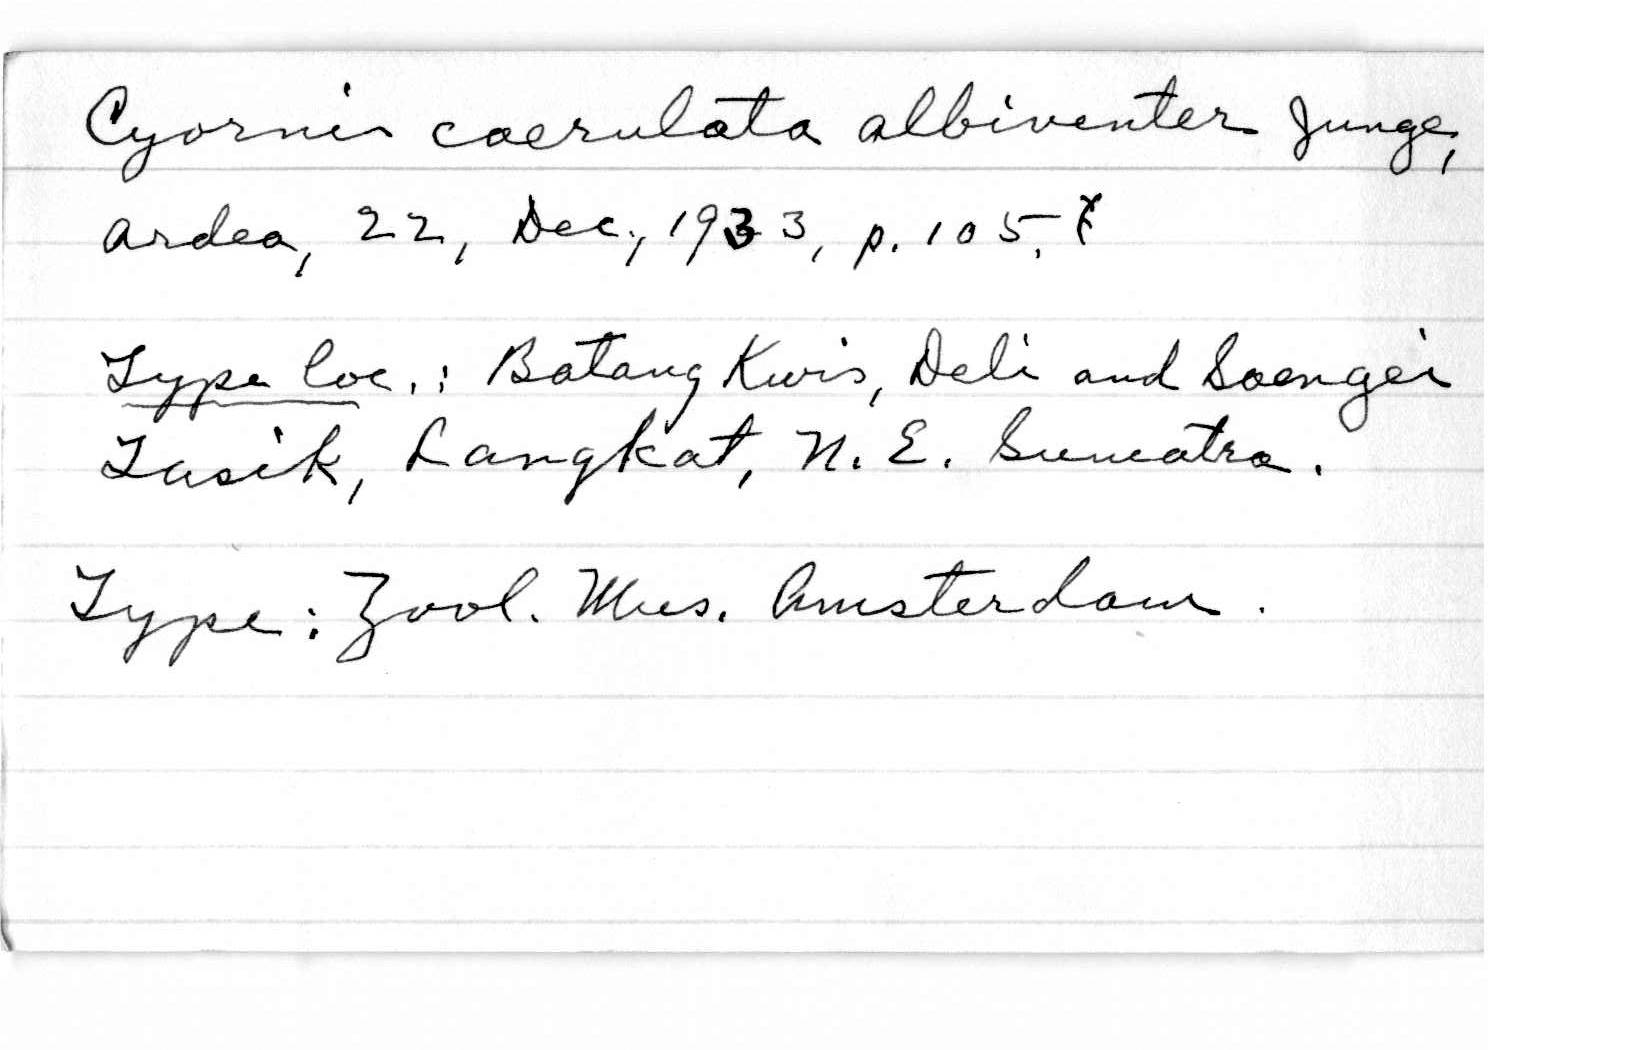 Cyornis caerulata albiventer Junge,
Ardea, 22, Dec., 1933, p. 105.*
Type loc.: Batang Kwis, Deli and Soengei
Tasik, Langkat, N. E. Sumatra.
Type: Zool. Mus. Amsterdam.